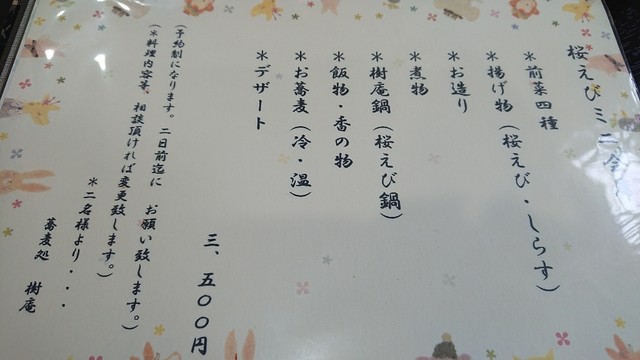 桜えびミニ会
＊前菜四種
＊揚げ物（桜えび・しらす）
＊お造り
＊煮物
＊樹庵鍋（桜えび鍋）
＊飯物・香の物
＊お蕎麦（冷・温）
＊デザート
三、五００円
（予約制になります。二日前迄に　お願い致します。）
（＊料理内容等、相談頂ければ変更致します。）
＊二名様より・・・
蕎麦処　樹庵